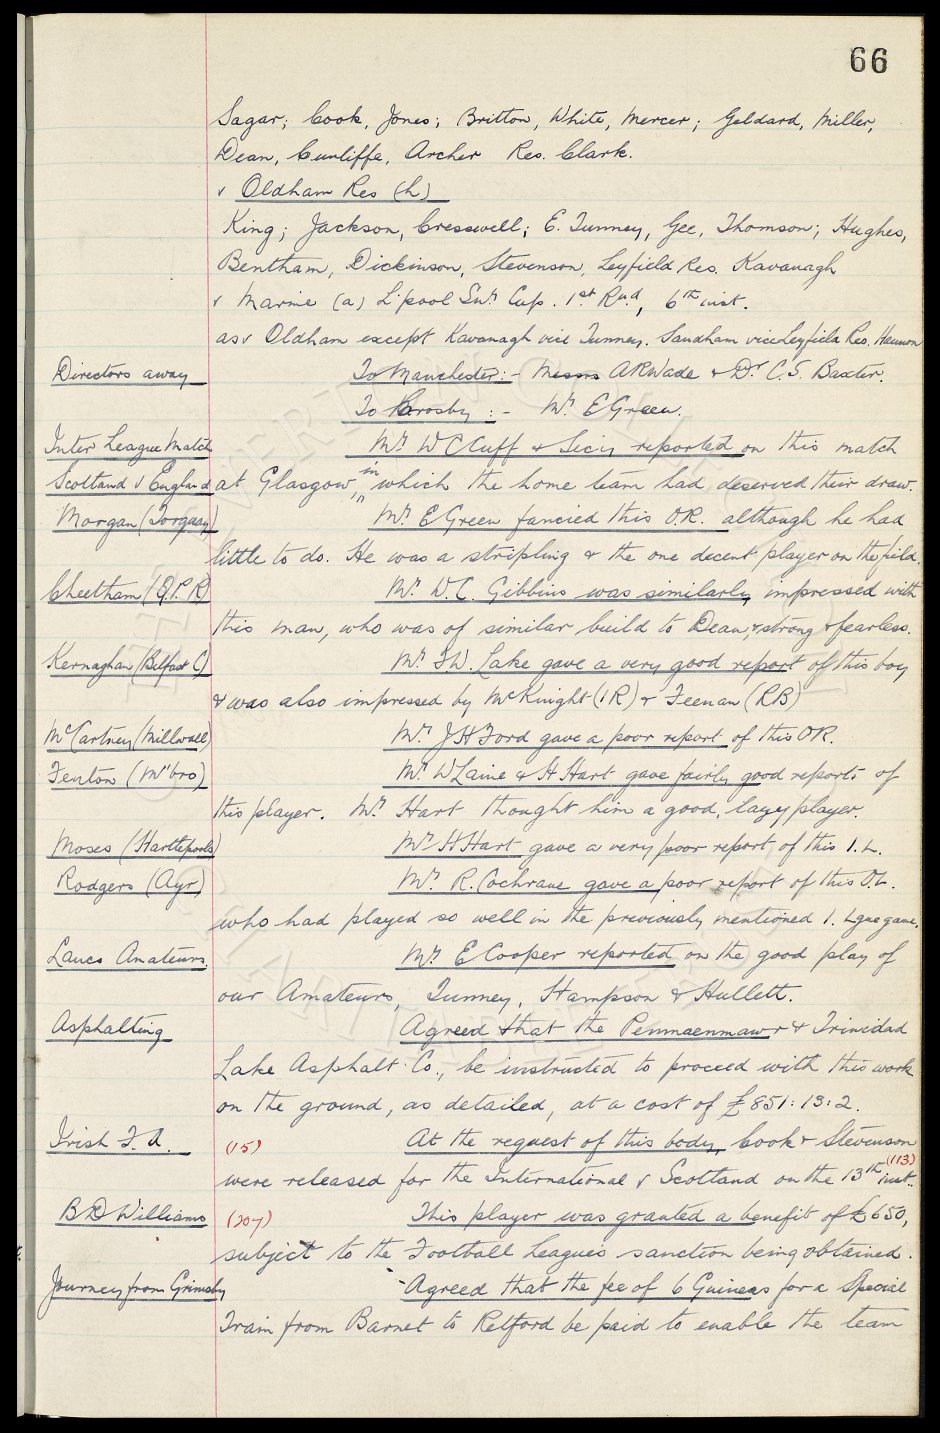 66
Sagar; Cook, Jones; Britton, White, Mercer; Geldard, Miller,
Dean, Cunliffe, Archer Res. Clark.
v Oldham Res (h)
King; Jackson, Cresswell; E. Tunney, Gee, Thomson; Hughes,
Bentham, Dickinson, Stevenson, Leyfield Res. Kavanagh
v Marine (a) L'pool Snr Cup. 1st Rnd, 6th inst.
as v Oldham except Kavanagh vice Tunney. Sandham vice Leyfield Res. Hannon
Directors away To Manchester:- Messrs A R Wade & Dr C.S. Baxter.
To Crosby:- Mr E Green.
Inter League Match Mr W C Cuff & Secy reported on this match
Scotland v England at Glasgow, in which the home team had deserved their draw.
Morgan (Torquay) Mr E Green fancied this O.R. although he had
little to do. He was a stripling & the one decent player on the field.
Cheetham (Q.P.R) Mr W.C. Gibbins was similarly impressed with
this man, who was of similar build to Dean, & strong & fearless.
Kernaghan (Belfast C) Mr T.W. Lake gave a very good report of this boy
& was also impressed by McKnight (IR) & Feenan (RB)
McCartney (Millwall) Mr J H Ford gave a poor report of this OR.
Fenton (M'bro) Mr W Laine & H Hart gave fairly good reports of
this player. Mr Hart thought him a good, lazy player.
Moses (Hartlepools) Mr H Hart gave a very poor report of this I.L.
Rodgers (Ayr) Mr R. Cochrane gave a poor report of this O.L.
who had played so well in the previously mentioned I. Lgue game.
Lancs Amateurs. Mr E Cooper reported on the good play of
our Amateurs, Tunney, Hampson & Hullett.
Asphalting Agreed that the Penmaenmawr & Trinidad
Lake Asphalt Co., be instructed to proceed with this work
on the ground, as detailed, at a cost of £851:13:2.
Irish F.A. (15) At the request of this body, Cook & Stevenson
were released for the International v Scotland on the 13th inst. (113)
B D Williams (207) This player was granted a benefit of £650,
subject to the Football League's sanction being obtained.
Journey from Grimsby Agreed that the fee of 6 Guineas for a Special
Train from Barnet to Retford be paid to enable the team